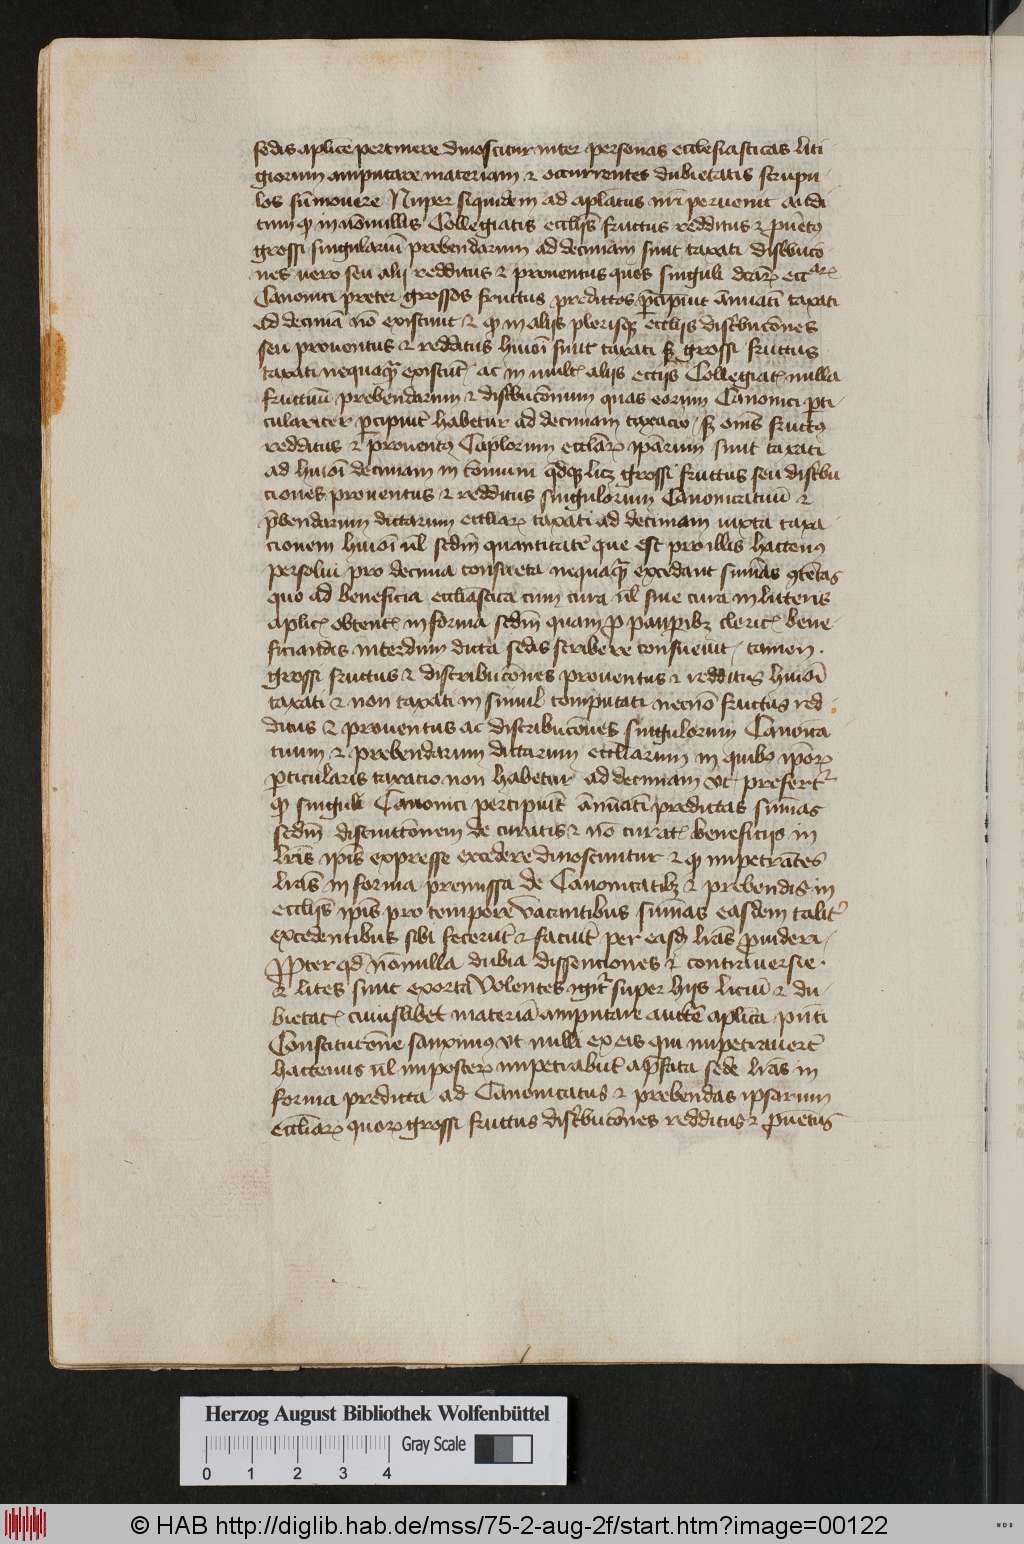 sedis aplice pertinere dinoscitur inter personas ecclesiasticas liti
giorum amputare materiam et occurrentes dubietatis scrupu
los sūmouere Nuper siquidem ad aplatus nr̄i peruenit audi
tum qꝫ in nōnullis Collegiatis eccliis fructus redditus et puētꝰ
grossi singulariū prebendarum ad decimam sunt taxati distbucō
nes uero seu alij redditus et prouentus quos singuli dcāꝝ eccaꝝ
Canonici preter grossos fructus predictos p̄cipiūt ānuatī taxati
ad decimā nō existunt et qꝫ in alijs plerisqꝫ eccliis distbucōnes
seu prouentus et redditus hmōi sunt taxati sꝫ grossi fructus
taxati nequaqͣ existūt ac in mult alijs eccīis Collegiat nulla
fructuū prebendarum et distbucōnum quas eorum Canonici pti
culariter pcipiūt habetur ad decimam taxacio sꝫ om̄s fructꝰ
redditus et prouentꝰ Caplorum eccliaꝝ ip̄arum sunt taxati
ad hmōi decimam in cōmuni qdqꝫ licꝫ grossi fructus seu distbu
ciones prouentus et redditus singulorum Canonicatuū et
p̄bendarum dictarum eccliaꝝ taxati ad decimam iuxta taxa
cionem hmōi ul scdm̄ quantitatē que est pro illis hactenꝰ
persolui pro decima consueta nequaqͣ excedant sum̄as ꝯtētas
quo ad beneficia eccliastica cum cura ul sine cura in litteris
aplic obtent in forma scdm̄ quam p paupibꝫ cleric bene
ficiandis interdum dicta sedes scribere consueuit tamen
grossi fructus et distribucōnes prouentus et redditus hmōi
taxati et non taxati in simul computati necnō fructus red
ditus et prouentus ac distribucōnes singulorum Canonica
tuum et prebendarum dictarum eccliarum in quibꝰ ip̄oꝝ
pticularis taxacio non habetur ad decimam vt prefert
qꝫ singuli Canonici percipiūt ānuatī predictas sum̄as
scdm̄ distinctōnem de curatis et nō curat beneficijs in
lr̄is ip̄is expresse excedere dinoscuntur et qꝫ impetrātes
lr̄as in forma premissa de Canonicatibꝫ et prebendis in
eccliis ip̄is pro tempore vacantibus sum̄as easdem talit
excedentibus sibi fecerūt et faciūt per easd lr̄as puideri
Ppter qd nōnulla dubia dissenciones et controuersie
et lites sunt exorta Volentes igit super hijs liciū et du
bietat cuiuslibet materiā amputare auctē aplica pn̄ti
Constitucōne sanximꝰ vt nulli ex eis qui impetrauert
hactenus ul imposteꝝ impetrabūt a p̄fata sede lr̄as in
forma predicta ad Canonicatus et prebendas ipsarum
eccliaꝝ quoꝝ grossi fructus distbucōnes redditus et puētus
Herzog August Bibliothek Wolfenbüttel
Gray Scale
0 1 2 3 4
© HAB http://diglib.hab.de/mss/75-2-aug-2f/start.htm?image=00122